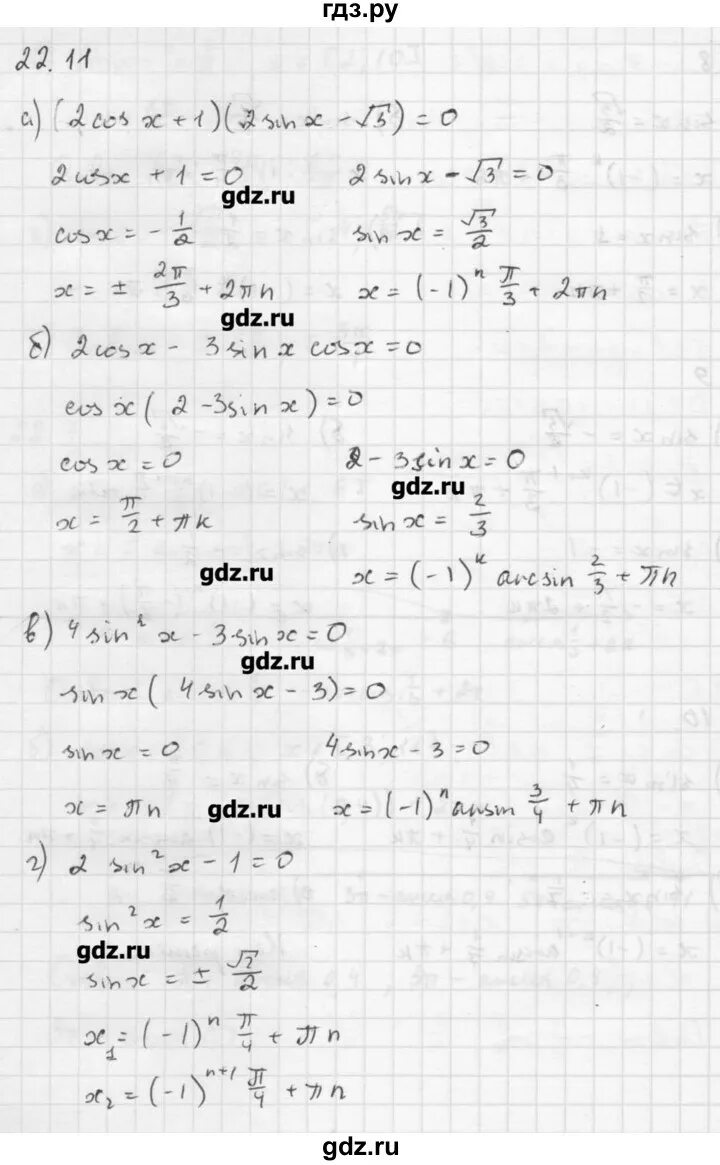 гдз.ру
22.11
а) (2cos x + 1)(2 sin x - √3) = 0
2cosx + 1 = 0 2 sin x - √3 = 0
gdz.ru
cos x = - 1/2 sin x = √3/2
x = ± 2π/3 + 2πn x = (-1)^n π/3 + 2πn
gdz.ru
б) 2cosx - 3 sin x cosx = 0
cos x ( 2 - 3sin x ) = 0
cos x = 0 2 - 3 sin x = 0
gdz.ru
x = π/2 + πk sin x = 2/3
gdz.ru x = (-1)^k arcsin 2/3 + πn
в) 4 sin² x - 3 sin x = 0
gdz.ru
sin x ( 4 sin x - 3 ) = 0
sin x = 0 4 sin x - 3 = 0
x = πn gdz.ru x = (-1)^n arcsin 3/4 + πn
г) 2 sin² x - 1 = 0
sin² x = 1/2
gdz.ru
sin x = ± √2/2
x₁ = (-1)^n π/4 + πn
x₂ = (-1)^(n+1) π/4 + πn
gdz.ru